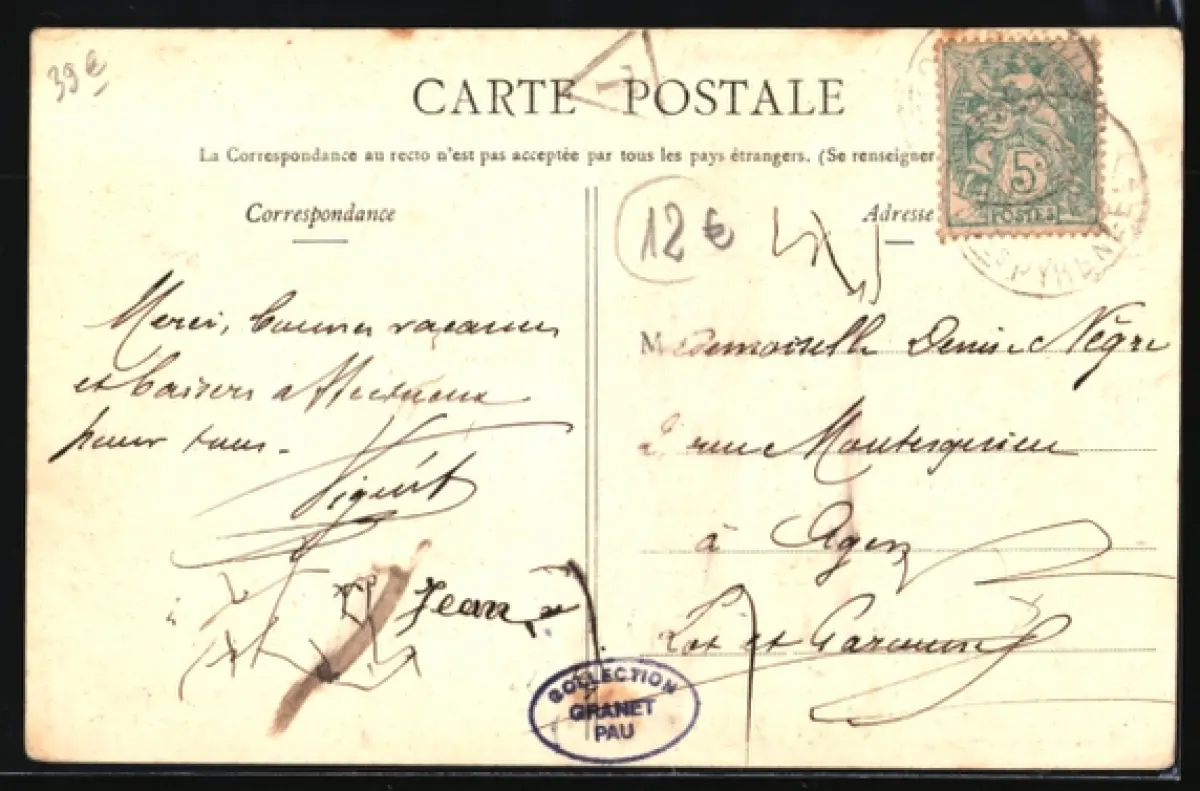 39€
T
CARTE POSTALE
La Correspondance au recto n'est pas acceptée par tous les pays étrangers. (Se renseigner
5c
POSTES
PYRENEES
Correspondance
12€
Adresse
Merci, bonnes vacances
et baisers affectueux
pour tous.
Jean
Mademoiselle Denise Nègre
2 rue Montesquieu
à Agen
Lot et Garonne
COLLECTION
GRANET
PAU